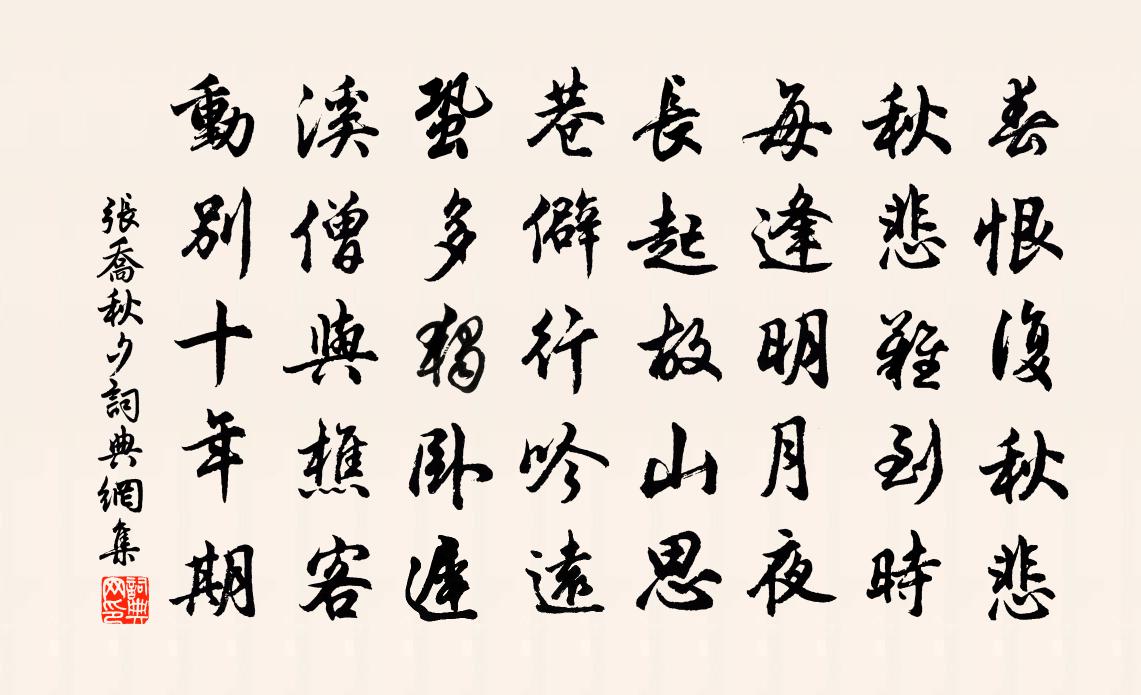 春恨復秋悲
秋悲難到時
每逢明月夜
長起故山思
巷僻行吟遠
蛩多獨臥遲
溪僧與樵客
動別十年期
張喬秋夕詞典網集
詞典网印